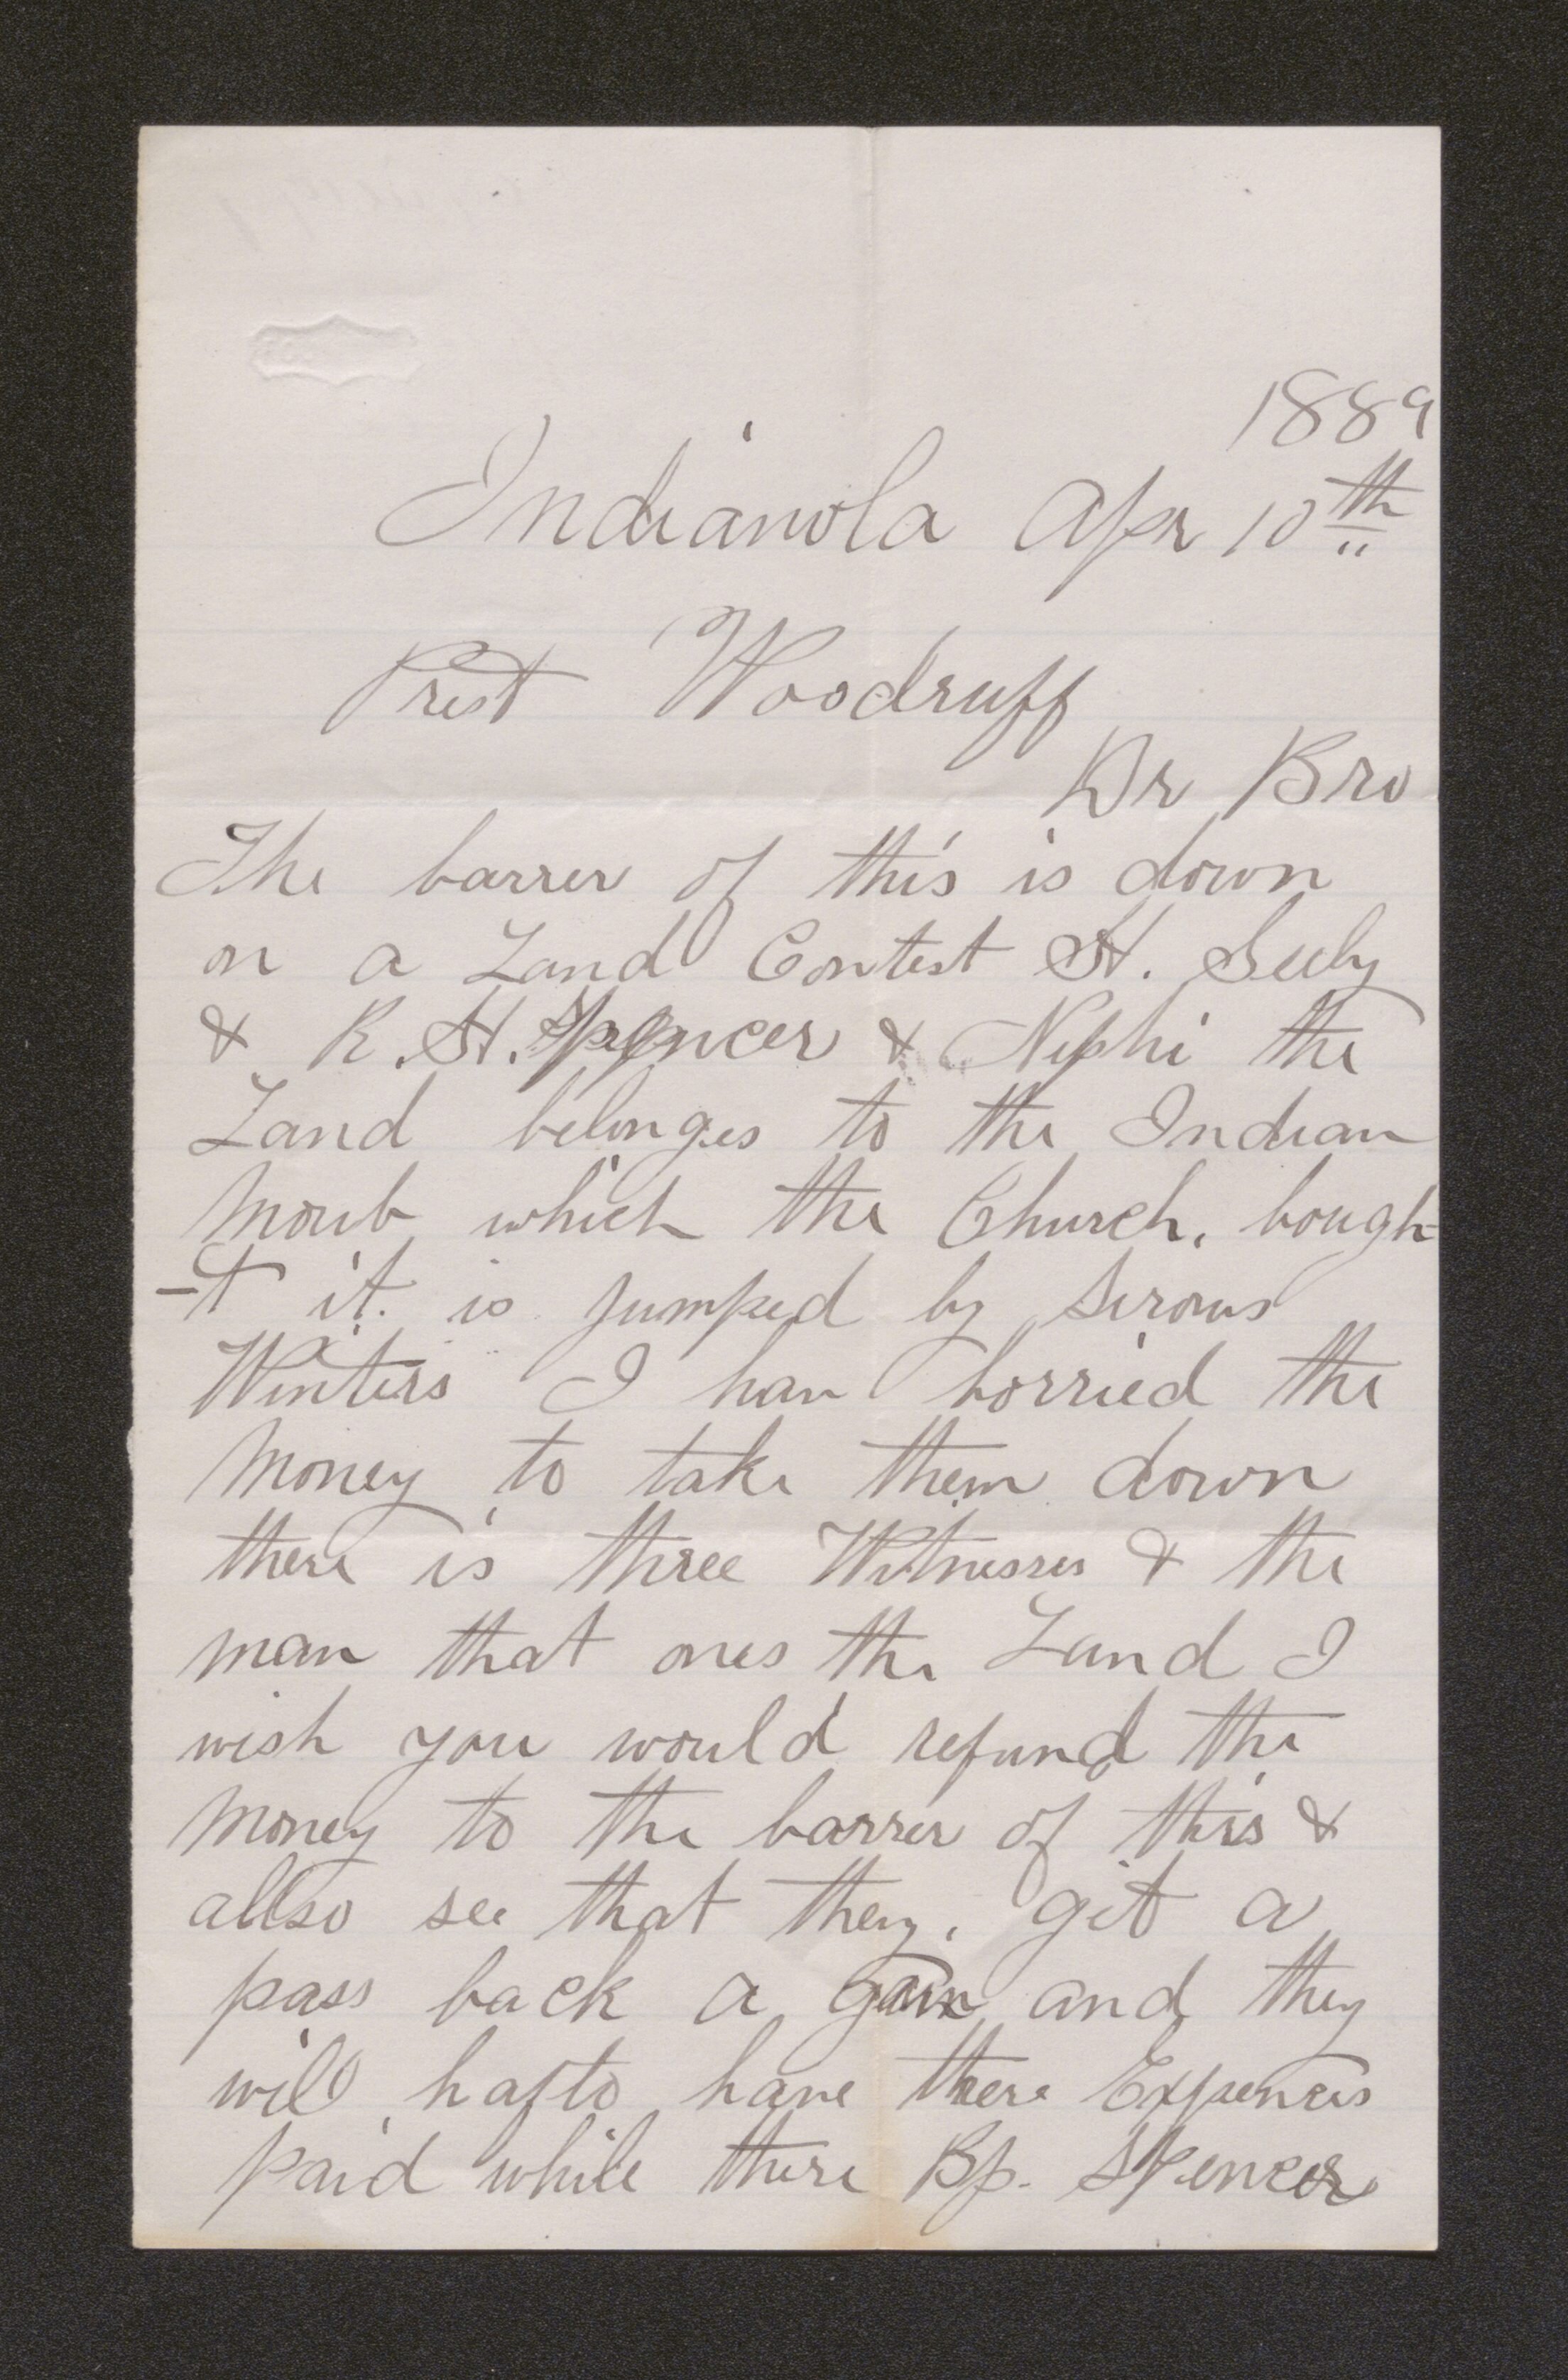 1889
Indianola Apr 10th
Prest Woodruff
Dr Bro
The barrer of this is down
on a Land Contest H. Seely
& R. H. Spencer & Nephi the
Land belonges to the Indian
Moub which the Church. bough-
-t it. is jumped by
Winters I have borried the
money to take them down
there is three Witnesses & the
man that ones the Land I
wish you would refund the
money to the barrer of this &
allso see that they. git a
pass back a gain and they
will hafto have there Expences
paid while there Bp. Spencer